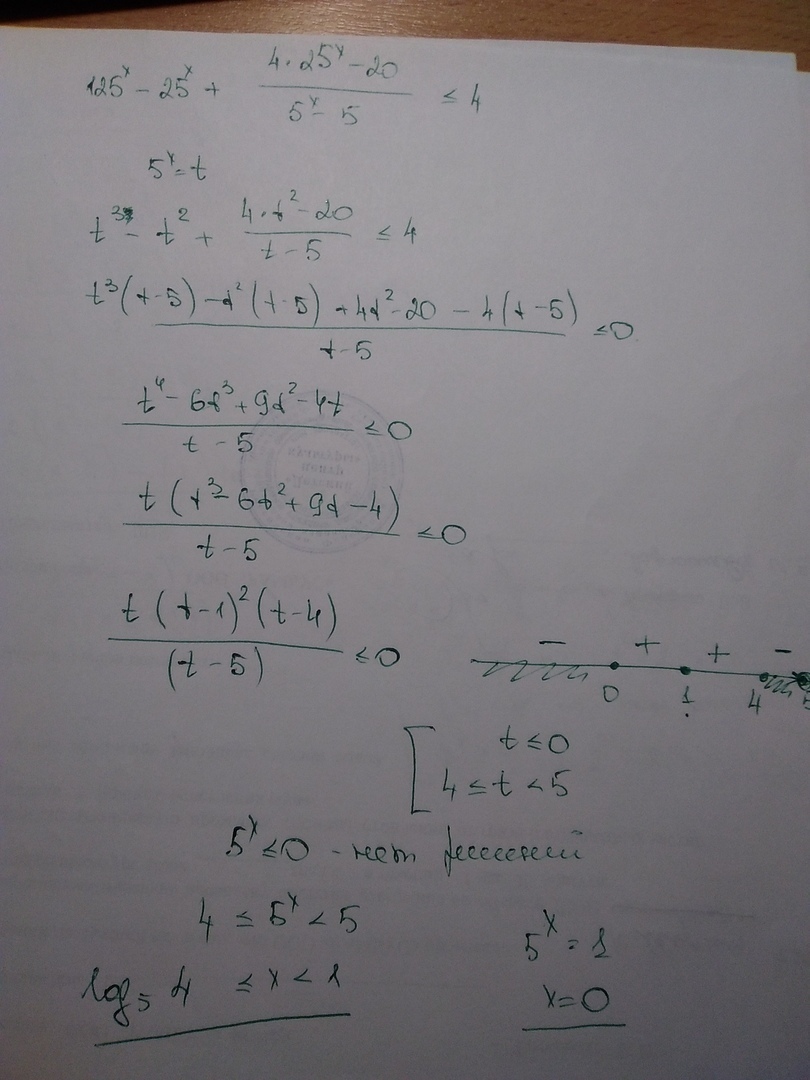 125^x - 25^x + (4·25^x - 20)/(5^x - 5) ≤ 4
5^x = t
t^3 - t^2 + (4·t^2 - 20)/(t - 5) ≤ 4
(t^3(t-5) - t^2(t-5) + 4t^2 - 20 - 4(t-5))/(t-5) ≤ 0
(t^4 - 6t^3 + 9t^2 - 4t)/(t - 5) ≤ 0
t(t^3 - 6t^2 + 9t - 4)/(t - 5) ≤ 0
t(t-1)^2(t-4)/(t-5) ≤ 0
- + + -
0 1 4 5
[ t ≤ 0
4 ≤ t < 5
5^x ≤ 0 - нет решений
4 ≤ 5^x < 5
5^x = 1
log_5 4 ≤ x < 1
x = 0